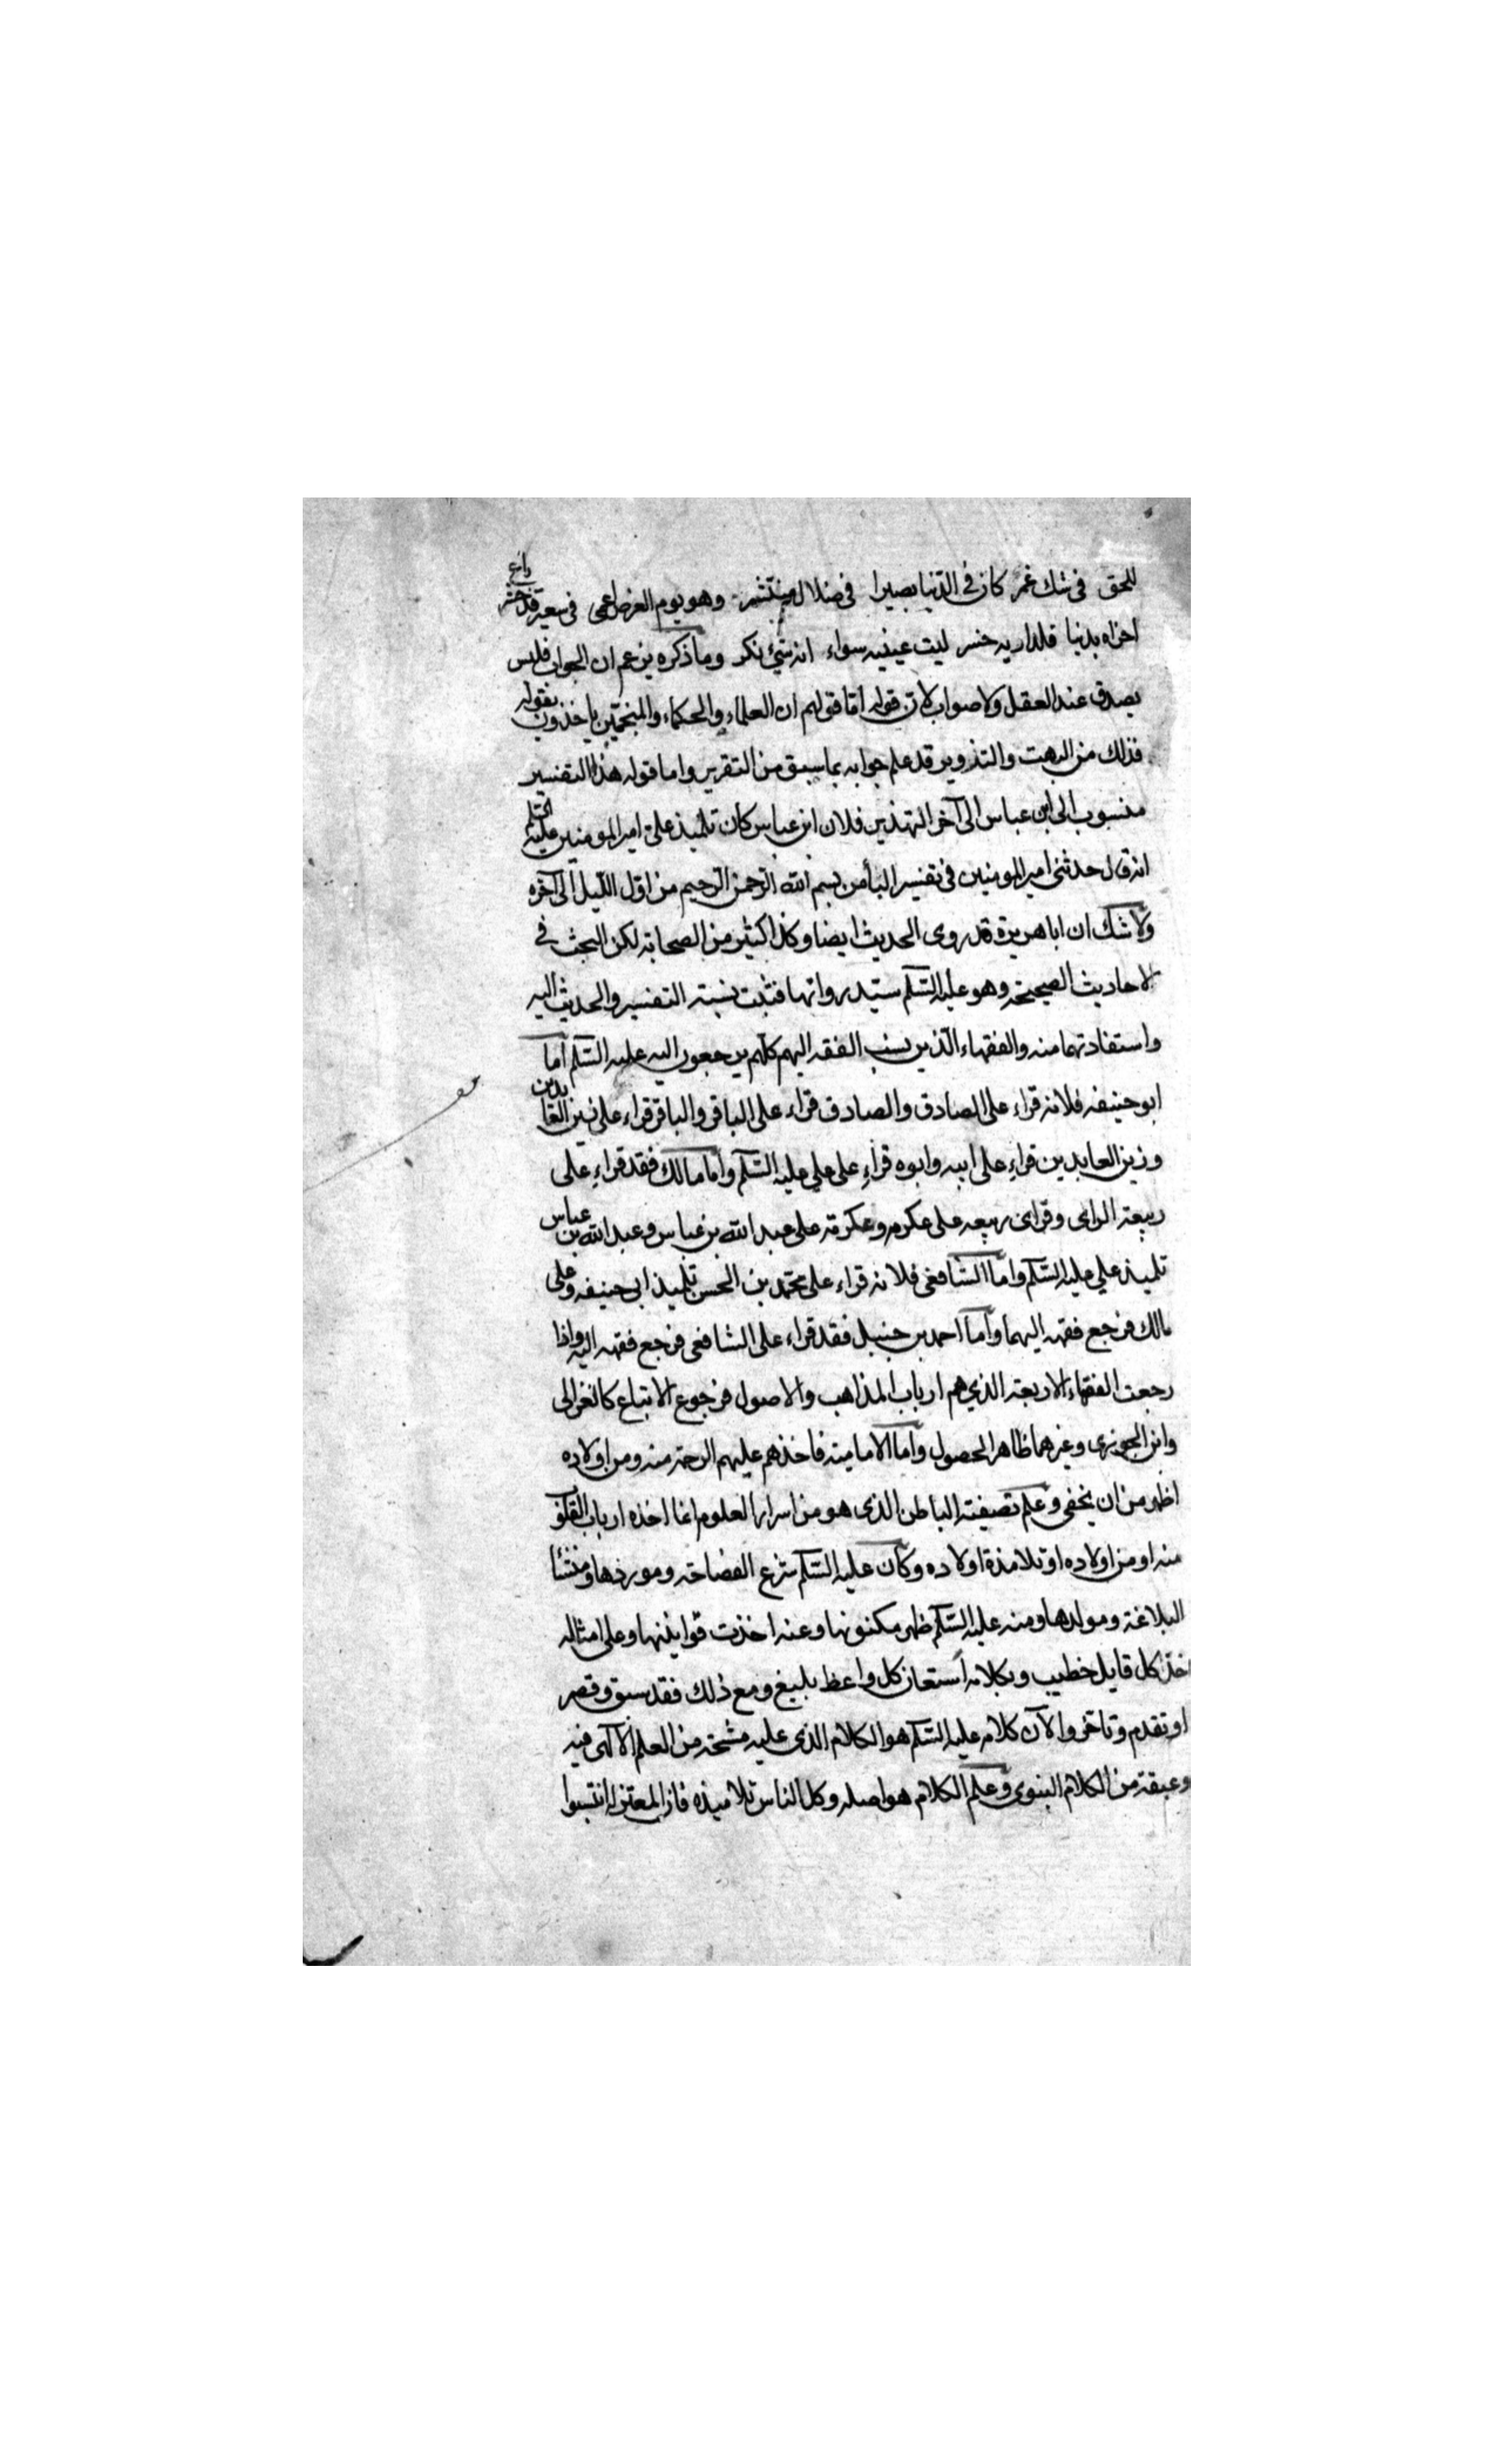 للحق في شك غمر كان في الدنيا بصيرا في ضلال منتشر وهو يوم العرض اعمى في سعير قد حشر وابع
اخراه بدنيا فلداريه خسر ليت عينيه سواء انه شئ نكر وما ذكره يزعم ان الجواب فليس
بصدق عند العقل ولا صواب لان قوله اما قولهم ان العلماء والحكماء والمنجمين ياخذون بقوله
فذلك من البهت والتذوير قد علم جوابه بما سبق من التقرير واما قوله هذا التفسير
منسوب الى ابن عباس الى آخر التهذين فلان ابن عباس كان تلميذ علي امير المومنين عليه السلم
انه قال حدثني امير المومنين في تفسير البا من بسم الله الرحمن الرحيم من اول الليل الى آخره
ولا شك ان ابا هريرة قد روى الحديث ايضا وكذا كثير من الصحابة لكن البحث في
الاحاديث الصحيحة وهو عليه السلم سيد رواتها فثبت نسبته التفسير والحديث اليه
واستفادتهما منه والفقهاء الذين ينسب الفقه اليهم كلهم يرجعون اليه عليه السلم اما
ابو حنيفه فلانه قراء على الصادق والصادق قراء على الباقر والباقر قراء على زين العابدين
وزين العابدين قراء على ابيه وابوه قراء على علي عليه السلم واما مالك فقد قراء على
ربيعة الراى وقراى ربيعه على عكرمه وعكرمة على عبد الله بن عباس وعبد الله بن عباس
تلميذ علي عليه السلم واما الشافعي فلانه قراء على محمد بن الحسن تلميذ ابي حنيفه وعلى
مالك فرجع فقهه اليهما واما احمد بن حنبل فقد قراء على الشافعي فرجع فقهه اليه واذا
رجعت الفقهاء الاربعة الذي هم ارباب المذاهب والاصول فرجوع الاتباع كالغزالي
وابن الجوزي وغيرهما ظاهر الحصول واما الامامية فاخذهم عليهم الرحمة منه ومن اولاده
اظهر من ان يخفى وعلم تصيفته الباطن الذي هو من اسرار العلوم انما اخذه ارباب القلوب
منه او من اولاده او تلامذة اولاده وكان عليه السلم شرع الفصاحة وموردها ومنشأ
البلاغة ومولدها ومنه عليه السلم ظهر مكنونها وعنه اخذت قوانينها وعلى امثاله
اخذ كل قايل خطيب وبكلامه استعان كل واعظ بليغ ومع ذلك فقد سبق وقصر
او تقدم وتاخر والآن كلامه عليه السلم هو الكلام الذي عليه مسحة من العلم الالهى فيه
وعبقة من الكلام النبوى وعلم الكلام هو اصله وكل الناس تلاميذه فان المعتزله انتسبوا